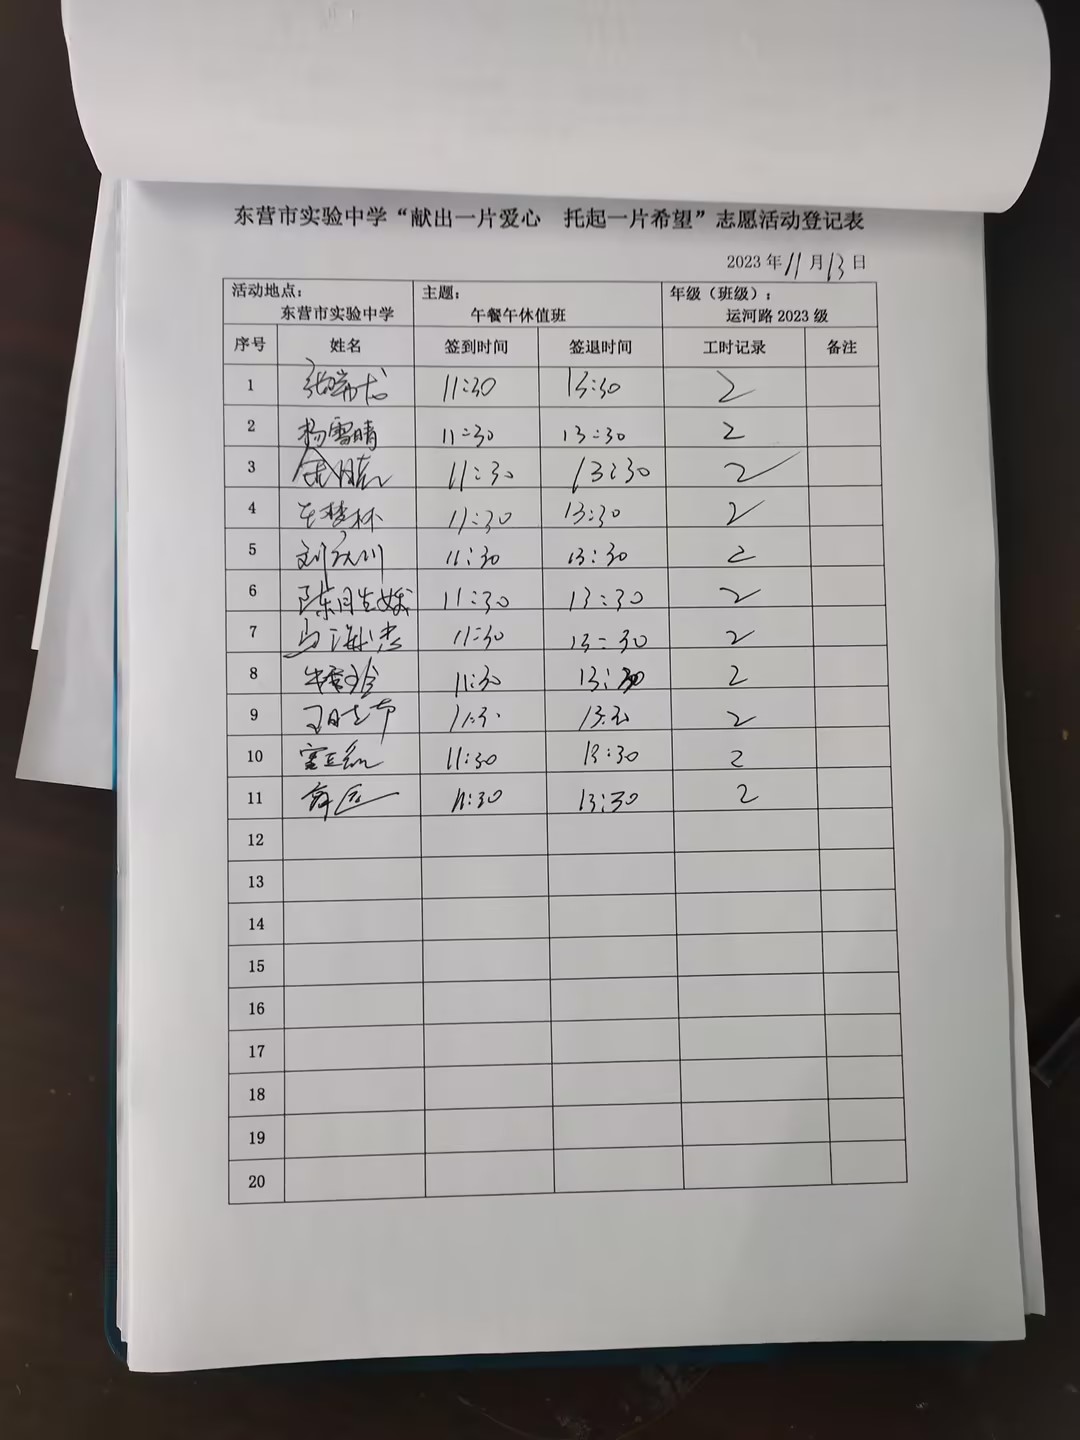 东营市实验中学“献出一片爱心 托起一片希望”志愿活动登记表
2023 年 11 月 13 日
活动地点： 主题： 年级（班级）：
东营市实验中学 午餐午休值班 运河路 2023 级
序号 姓名 签到时间 签退时间 工时记录 备注
1 11:30 13:30 2
2 杨雪晴 11:30 13:30 2
3 11:30 13:30 2
4 11:30 13:30 2
5 11:30 13:30 2
6 11:30 13:30 2
7 马海杰 11:30 13:30 2
8 11:30 13:30 2
9 11:30 13:30 2
10 11:30 13:30 2
11 11:30 13:30 2
12
13
14
15
16
17
18
19
20